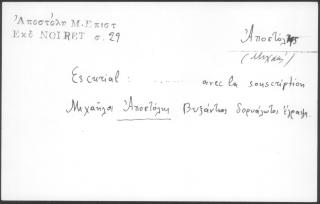 Ἀποστόλη Μ. Ἐπιστ
Ἐκδ NOIRET σ. 29
Ἀποστόλης
(Μιχαὴλ)
Escurial : ........ avec la souscription
Μιχαῆλος Ἀποστόλης Βυζάντιος δορυάλωτος ἔγραψε